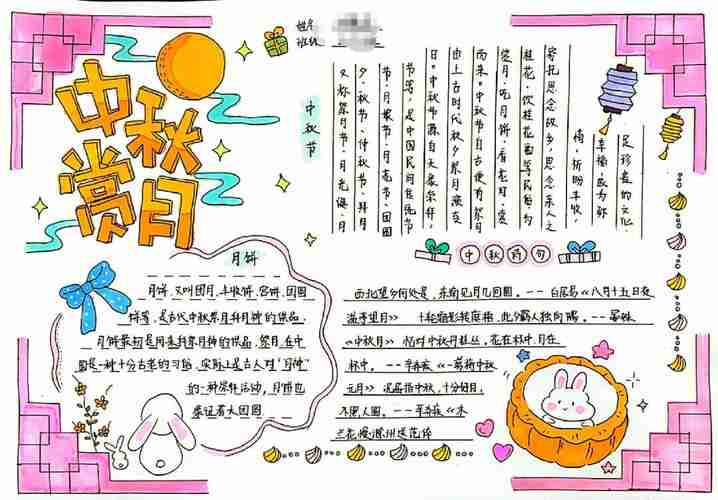 中秋赏月
姓名
班级
中秋节
又称祭月节、月光诞、月
夕、秋节、仲秋节、拜月
节、月娘节、月亮节、团圆
节等，是中国民间传统节
日。中秋节源自天象崇拜，
由上古时代秋夕祭月演变
而来。中秋节自古便有祭月、
赏月、吃月饼、看花灯、赏
桂花、饮桂花酒等民俗，为
寄托思念故乡，思念亲人之
情，祈盼丰收、
幸福，成为弥
足珍贵的文化
月饼
月饼，又叫团月、丰收饼、宫饼、团圆
饼等，是古代中秋祭月拜月神的供品，
月饼最初是用来拜祭月神的供品，祭月，在中
国是一种十分古老的习俗，实际上是古人对"月神"
的一种崇拜活动，月饼也
象征着大团圆
中秋诗句
西北望乡何处是，东南见月几回圆。--白居易《八月十五日夜
湓亭望月》 十轮霜影转庭梧，此夕羁人独向隅。--晏殊
《中秋月》 怕对中秋月
花在杯中，月在
杯中。--辛弃疾《
中秋
元月》 况屈指中秋，十分好月，
不照人圆。--辛弃疾《木
兰花慢·滁州送范倅